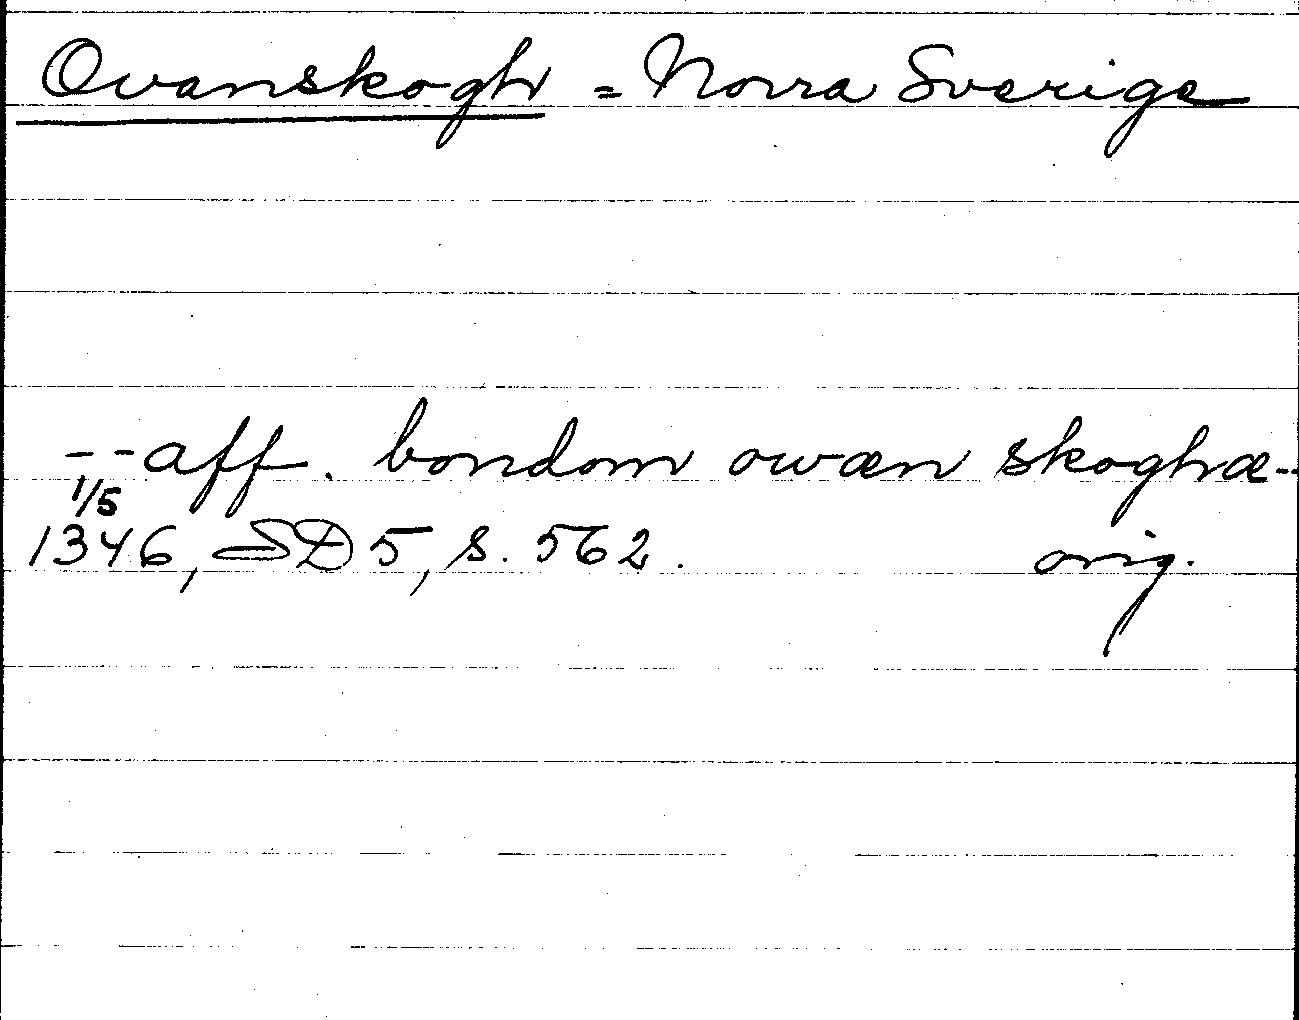 Ovanskogh = Norra Sverige
-- aff. bondom owæn skoghæ --
1/5
1346, SD 5, s. 562. orig.